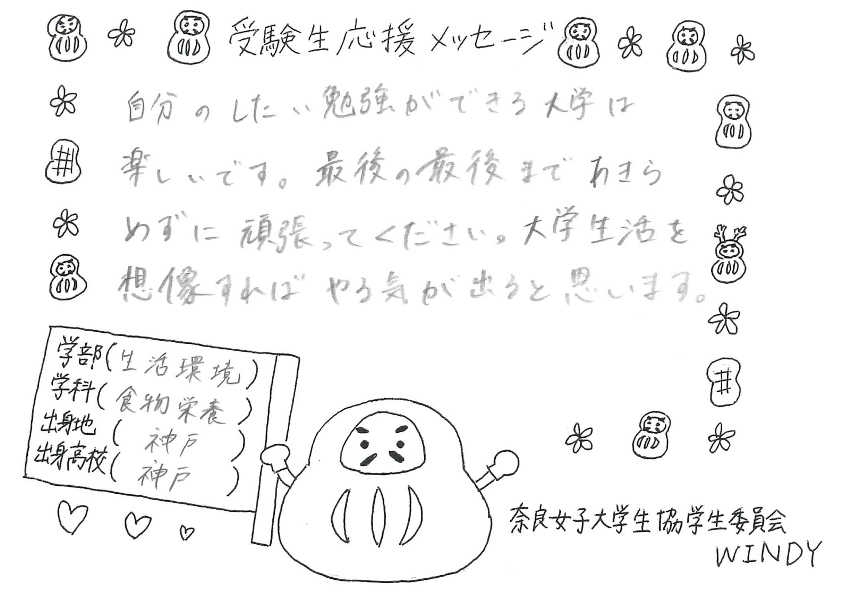 受験生応援メッセージ
自分のしたい勉強ができる大学は
楽しいです。最後の最後まであきら
めずに頑張ってください。大学生活を
想像すればやる気が出ると思います。
学部(生活環境)
学科(食物栄養)
出身地(神戸)
出身高校(神戸)
奈良女子大学生協学生委員会
WINDY